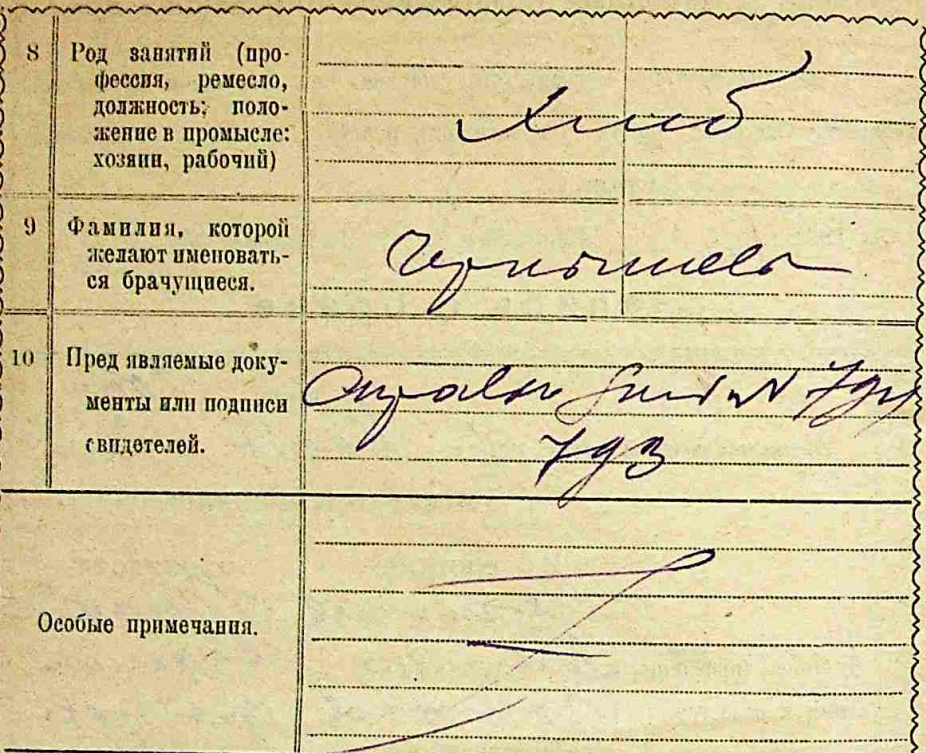 8 Род занятий (про-
фессия, ремесло,
должность; поло-
жение в промысле:
хозяин, рабочий)
Хлиб
9 Фамилия, которой
желают именовать-
ся брачущиеся.
Чернышевы
10 Пред являемые доку-
менты или подписи
свидетелей.
справка
793
Особые примечания.